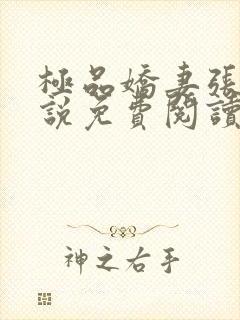 極品嬌妻張
說免費閱讀
神之右手